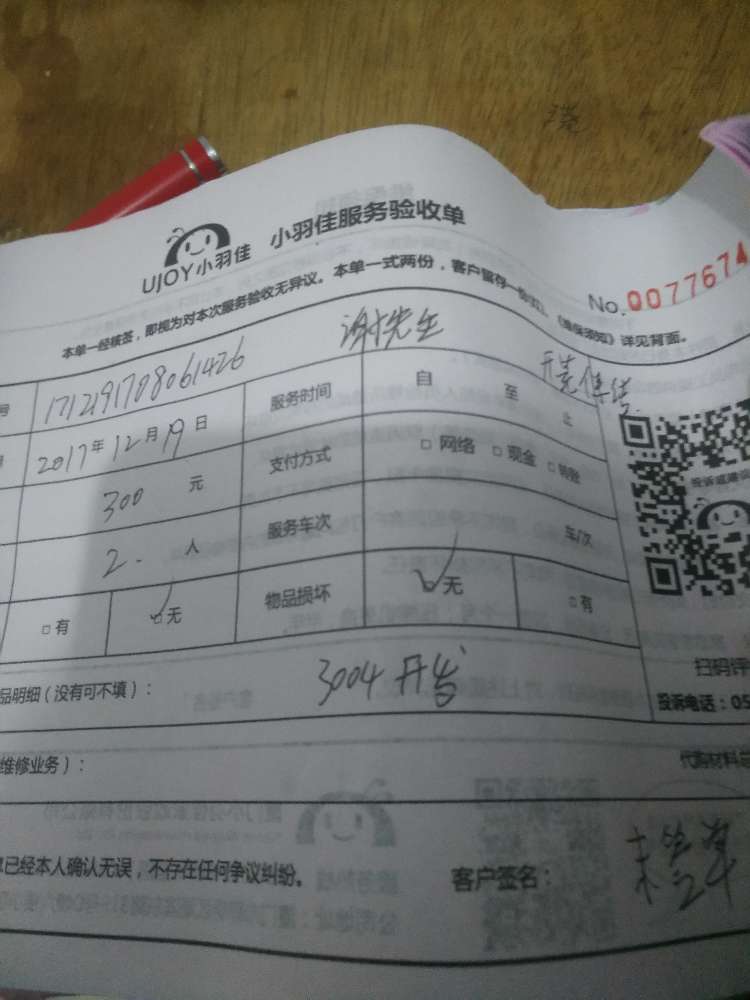 UJOY小羽佳 小羽佳服务验收单
No.0077674
本单一经核签，即视为对本次服务验收无异议。本单一式两份，客户留存一份 《维保须知》详见背面。
谢先生
号 1712191708061426 服务时间 自 至 止
2017年12月19日 支付方式 □网络 □现金 □转账
300 元 服务车次 车/次
2. 人
□有 ☑无 物品损坏 ☑无 □有
投诉或建议
扫码评
品明细（没有可不填）： 3004开发
投诉电话：05
维修业务）： 代购材料总
已经本人确认无误，不存在任何争议纠纷。 客户签名：